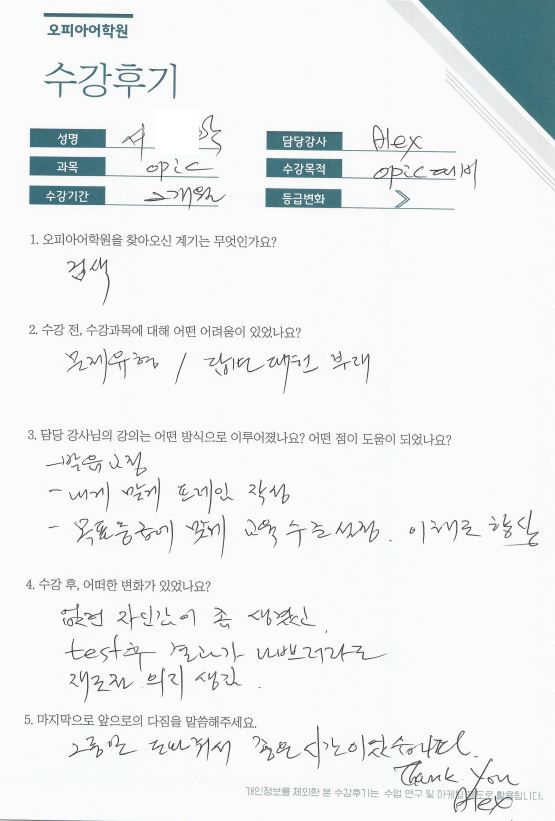 오피아어학원
수강후기
성명 서
담당강사 Alex
과목 opic
수강목적 opic 대비
수강기간 2개월
등급변화
1. 오피아어학원을 찾아오신 계기는 무엇인가요?
검색
2. 수강 전, 수강과목에 대해 어떤 어려움이 있었나요?
문제유형 / 답변
3. 담당 강사님의 강의는 어떤 방식으로 이루어졌나요? 어떤 점이 도움이 되었나요?
- 발음교정
- 내게 맞게 프레임 작성
- 목표등급에 맞게 교육 수준 설정.
4. 수강 후, 어떠한 변화가 있었나요?
없던 자신감이 좀 생겼신
test후 결과가 나쁘더라도
재도전 의지 생김.
5. 마지막으로 앞으로의 다짐을 말씀해주세요.
그동안 도와줘서 좋은 시간이었습니다.
Thank You
개인정보를 제외한 본 수강후기는 수업 연구 및 마케팅 용도로 활용됩니다.
Alex